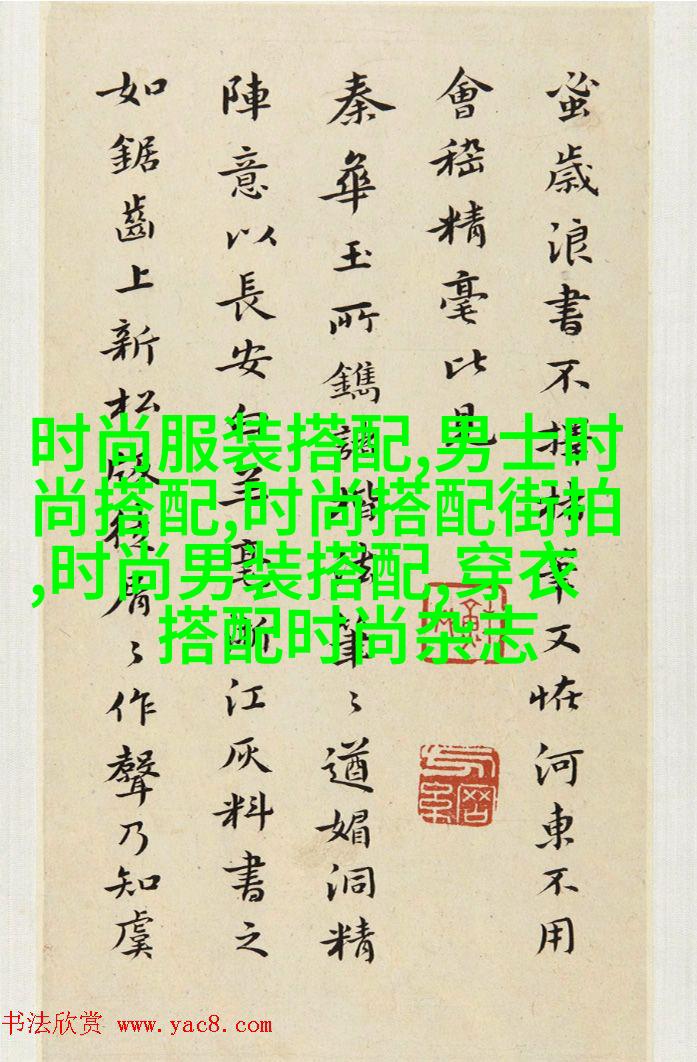 蚤歲浪書不擇筆又恠河東不用
會稽精毫比見
秦華玉所鐫筆〻遒媚洞精
陣意以長安白羊毫斷江灰料書之
如鋸齒上新松屑〻作聲乃知虞
时尚服装搭配,男士时
尚搭配,时尚搭配街拍
,时尚男装搭配,穿衣
搭配时尚杂志
书法欣赏 www.yac8.com